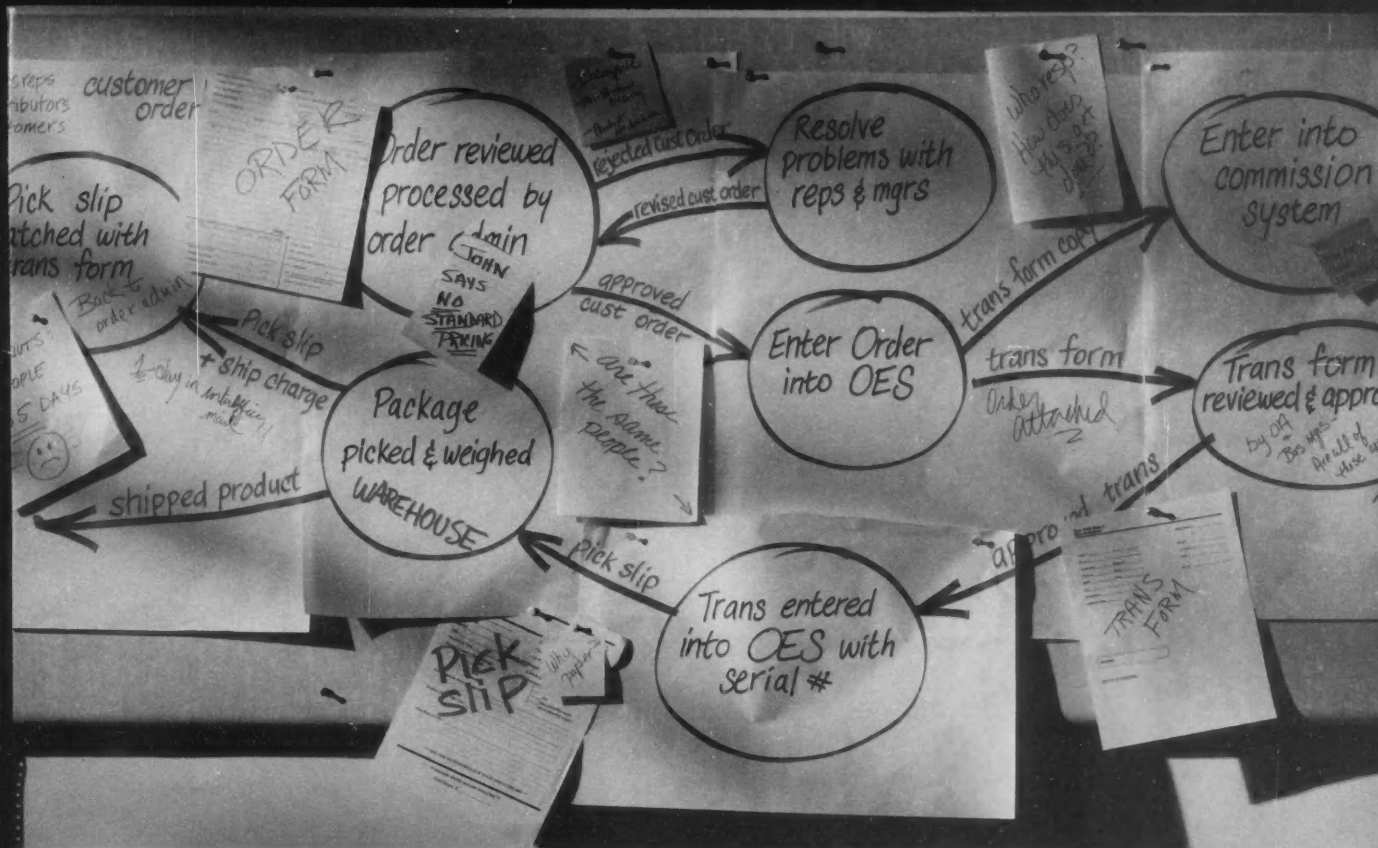 customer
order
ORDER
FORM
Order reviewed
processed by
order admin
JOHN
SAYS
NO
STANDARD
PRICING
rejected cust order
revised cust order
Resolve
problems with
reps & mgrs
who resp?
How does
this
Enter into
commission
system
Pick slip
matched with
trans form
Back to
order admin
5 DAYS
Pick slip
+ ship charge
shipped product
Package
picked & weighed
WAREHOUSE
approved
cust order
are these
the same
people?
Enter Order
into OES
trans form copy
trans form
Order
attached
Trans form
reviewed & appro
by OA
Are all of
these
approved trans
TRANS
FORM
pick slip
Trans entered
into OES with
serial #
PICK
SLIP
Why